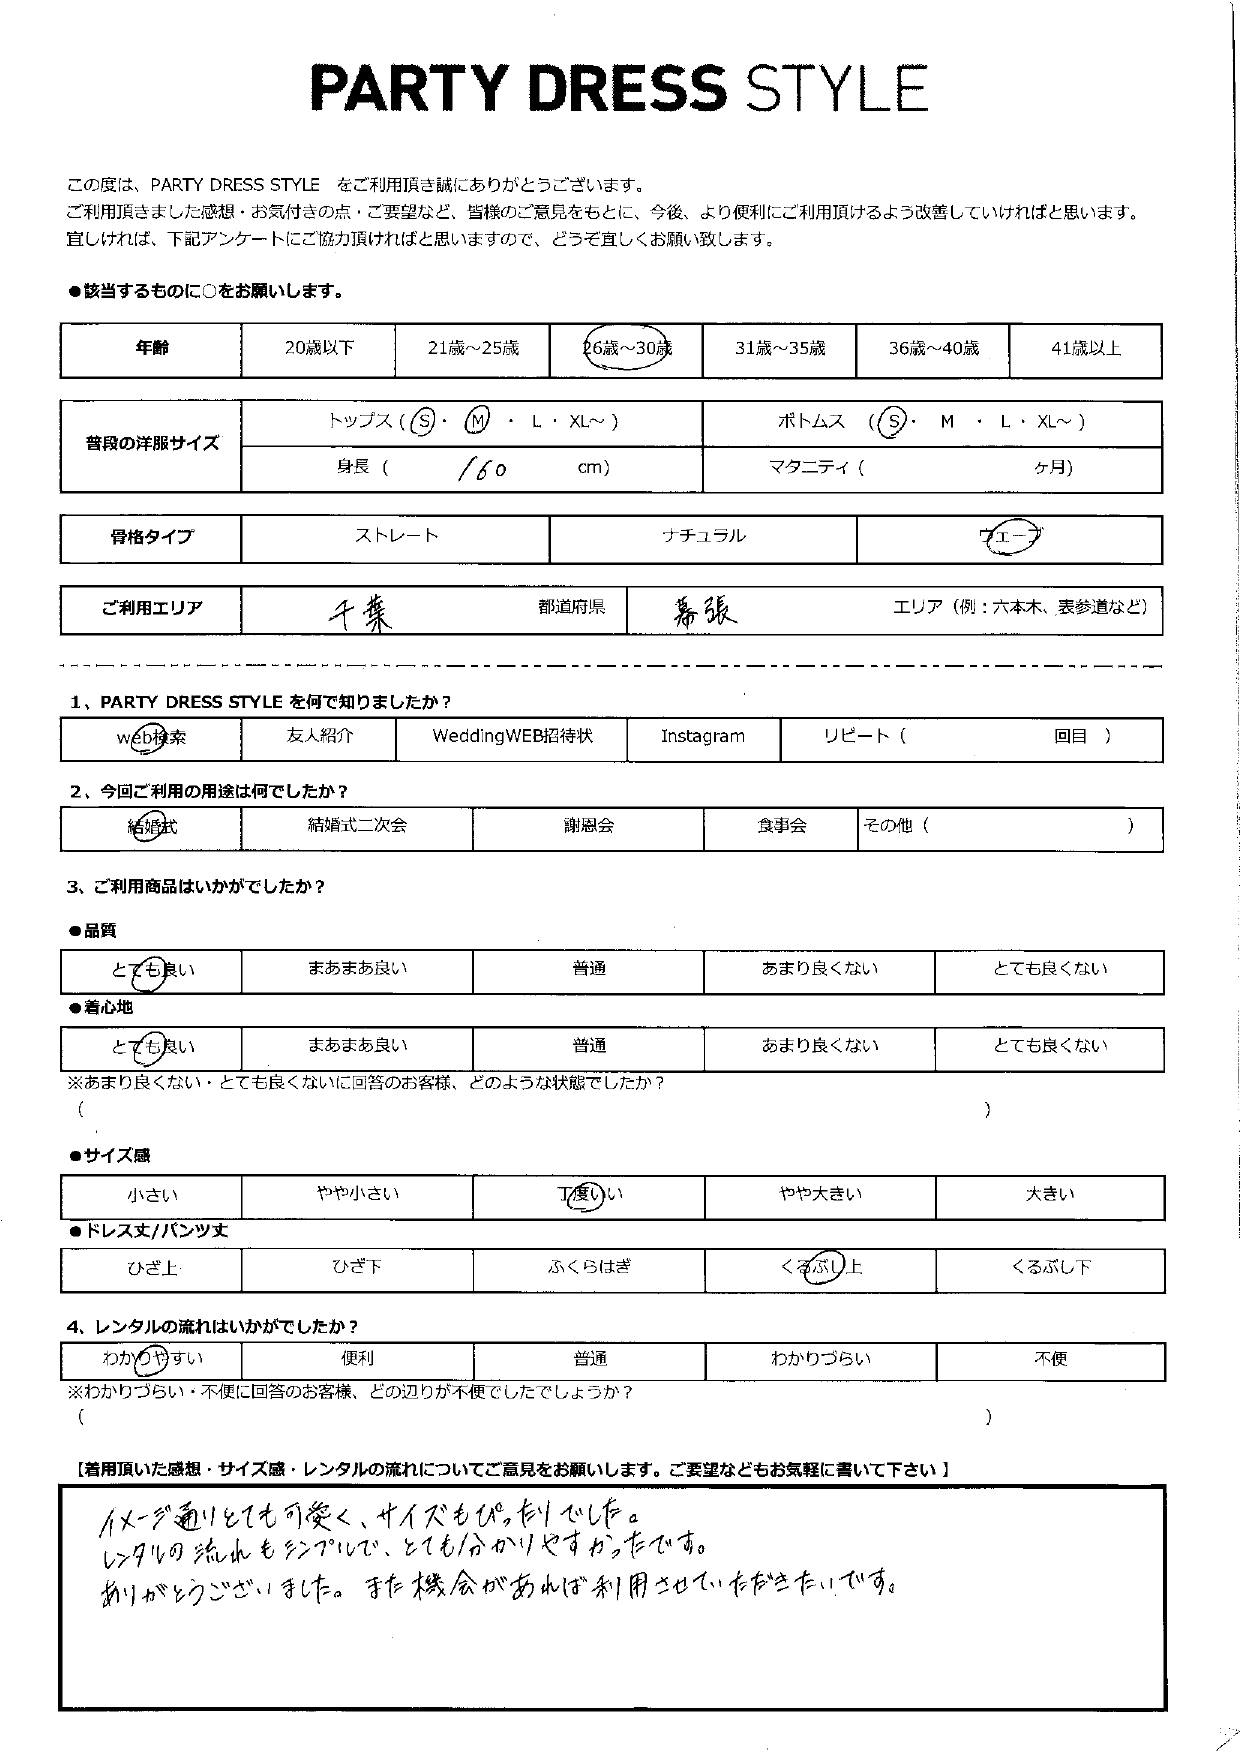 PARTY DRESS STYLE
この度は、PARTY DRESS STYLE をご利用頂き誠にありがとうございます。
ご利用頂きました感想・お気付きの点・ご要望など、皆様のご意見をもとに、今後、より便利にご利用頂けるよう改善していければと思います。
宜しければ、下記アンケートにご協力頂ければと思いますので、どうぞ宜しくお願い致します。
●該当するものに○をお願いします。
年齢 20歳以下 21歳～25歳 26歳～30歳 31歳～35歳 36歳～40歳 41歳以上
普段の洋服サイズ
トップス ( S ・ M ・ L ・ XL～ ) ボトムス ( S ・ M ・ L ・ XL～ )
身長 ( 160 cm) マタニティ ( ヶ月)
骨格タイプ ストレート ナチュラル ウェーブ
ご利用エリア 千葉 都道府県 幕張 エリア（例：六本木、表参道など）
1、PARTY DRESS STYLE を何で知りましたか？
web検索 友人紹介 WeddingWEB招待状 Instagram リピート ( 回目 )
2、今回ご利用の用途は何でしたか？
結婚式 結婚式二次会 謝恩会 食事会 その他 ( )
3、ご利用商品はいかがでしたか？
●品質
とても良い まあまあ良い 普通 あまり良くない とても良くない
●着心地
とても良い まあまあ良い 普通 あまり良くない とても良くない
※あまり良くない・とても良くないに回答のお客様、どのような状態でしたか？
( )
●サイズ感
小さい やや小さい 丁度いい やや大きい 大きい
●ドレス丈/パンツ丈
ひざ上 ひざ下 ふくらはぎ くるぶし上 くるぶし下
4、レンタルの流れはいかがでしたか？
わかりやすい 便利 普通 わかりづらい 不便
※わかりづらい・不便に回答のお客様、どの辺りが不便でしたでしょうか？
( )
【着用頂いた感想・サイズ感・レンタルの流れについてご意見をお願いします。ご要望などもお気軽に書いて下さい】
イメージ通りとても可愛く、サイズもぴったりでした。
レンタルの流れもシンプルで、とても分かりやすかったです。
ありがとうございました。また機会があれば利用させていただきたいです。